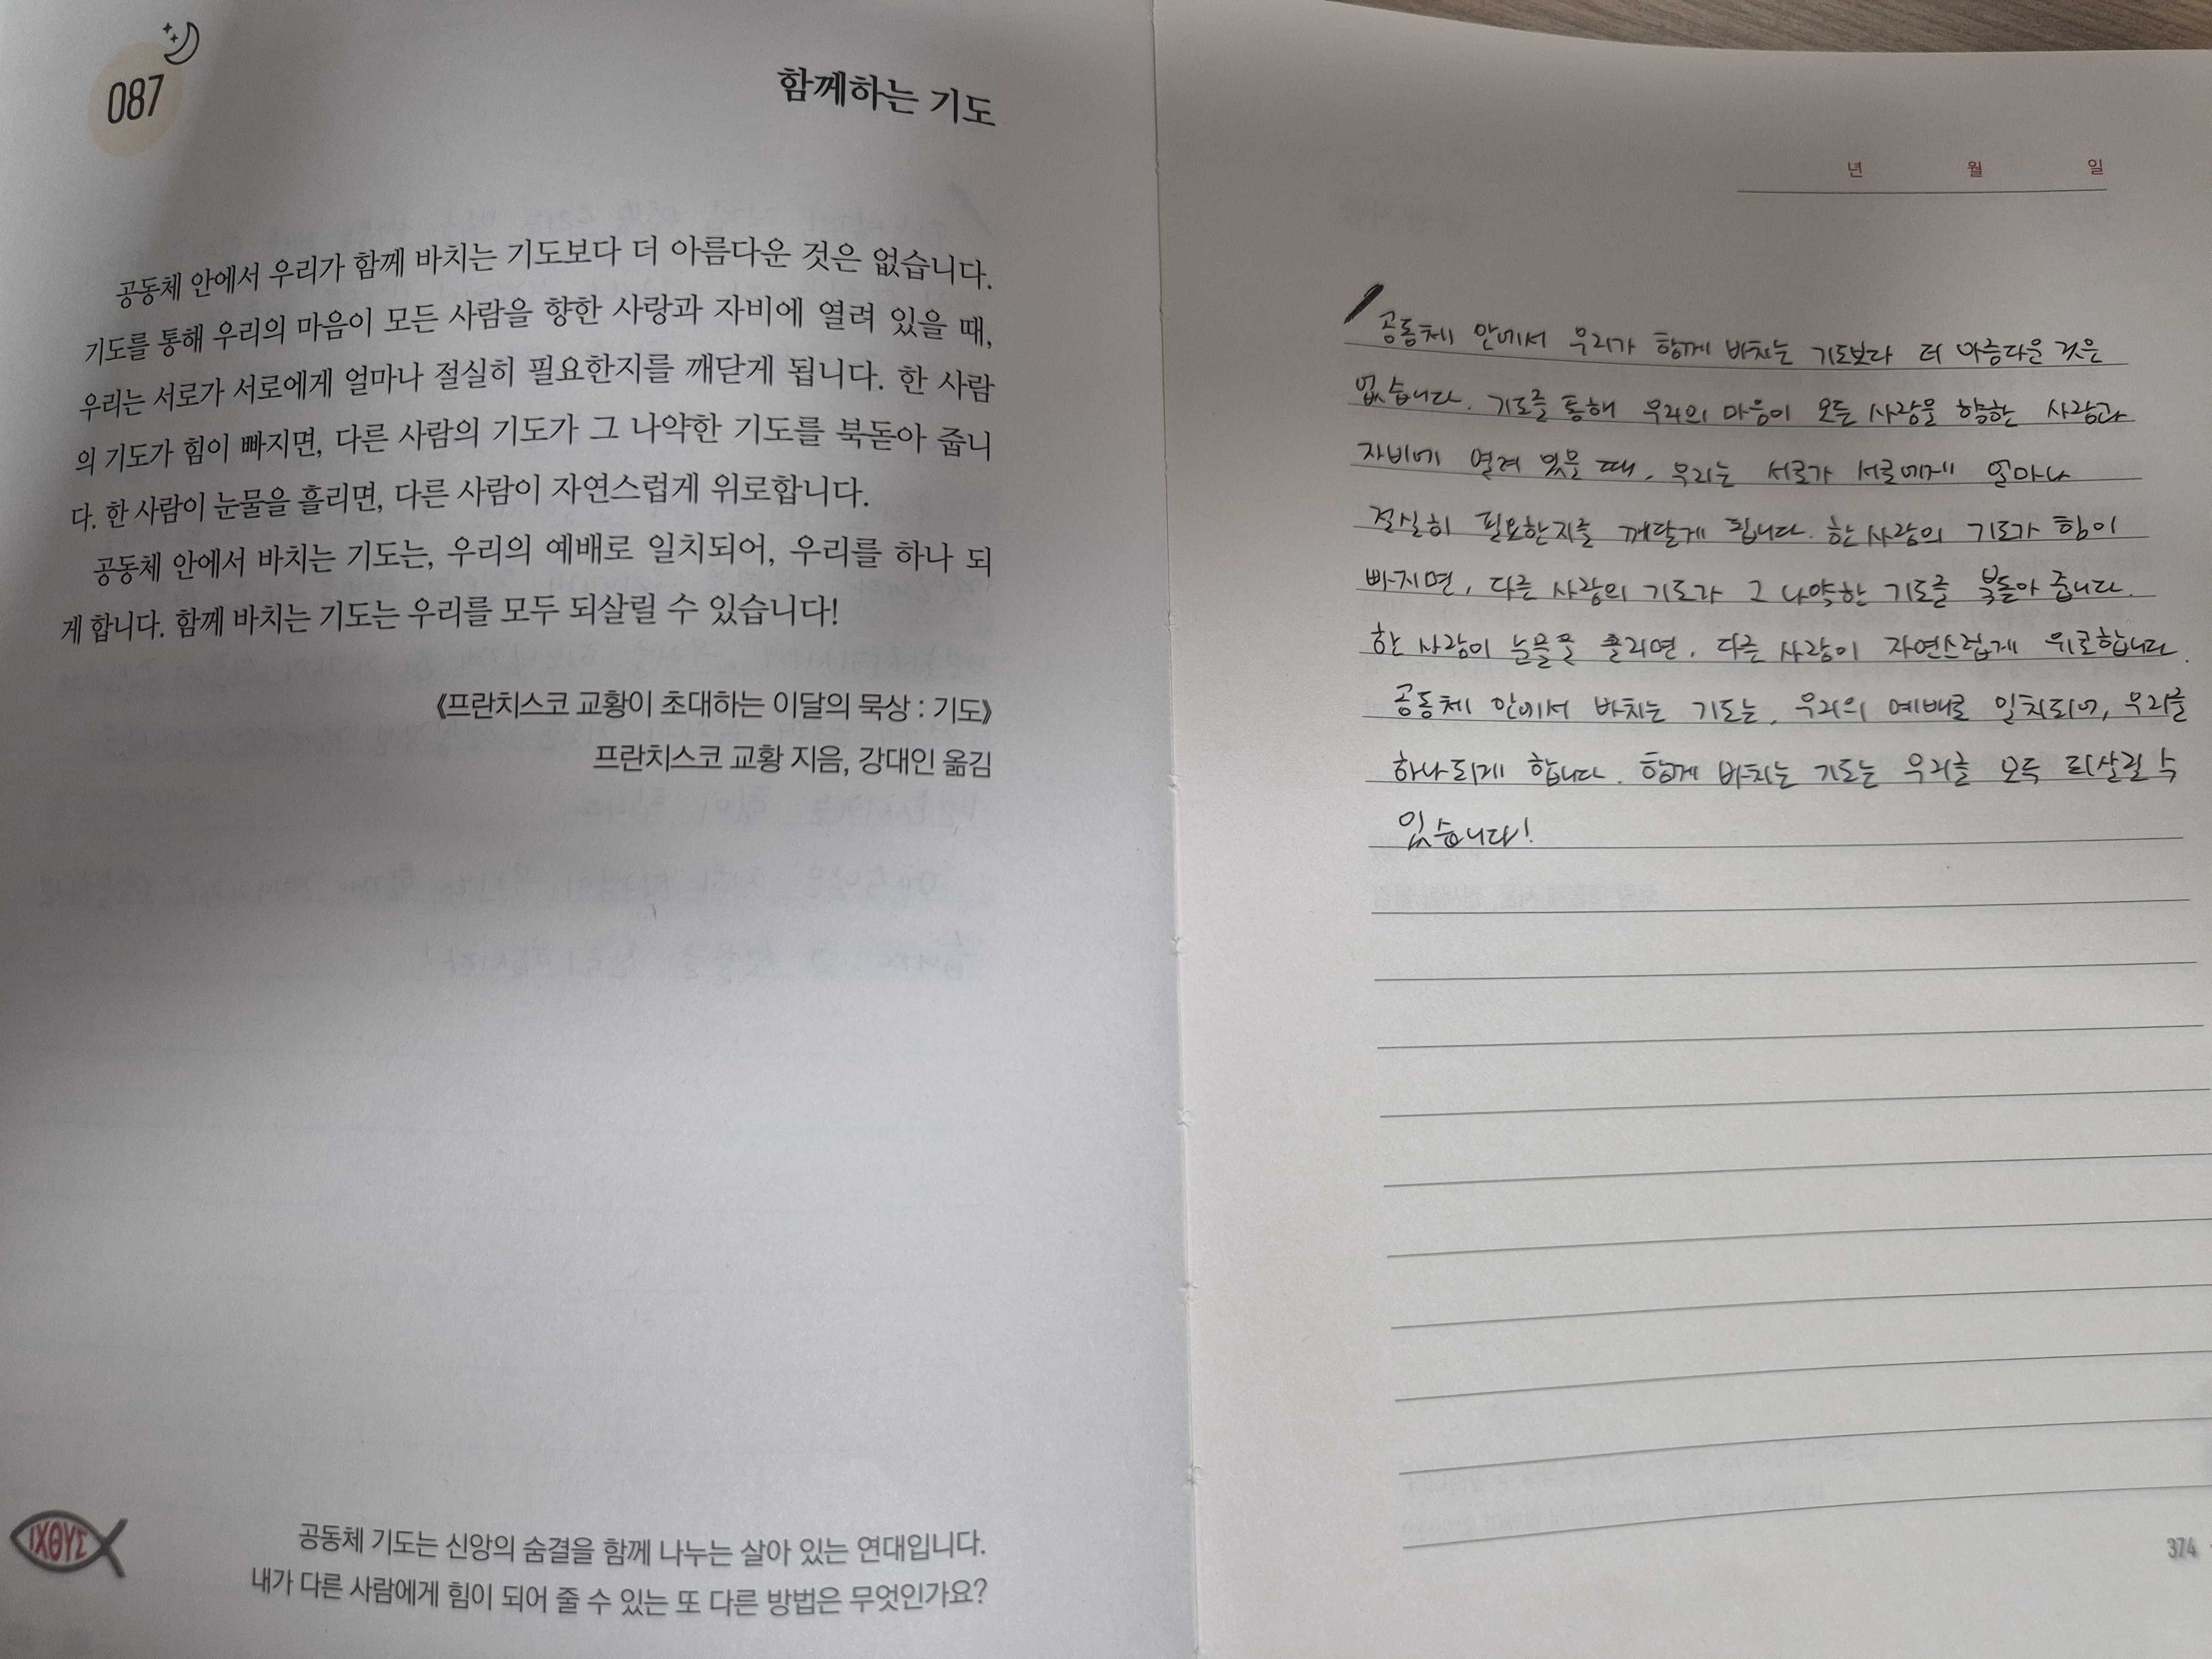 087
함께하는 기도
공동체 안에서 우리가 함께 바치는 기도보다 더 아름다운 것은 없습니다.
기도를 통해 우리의 마음이 모든 사람을 향한 사랑과 자비에 열려 있을 때,
우리는 서로가 서로에게 얼마나 절실히 필요한지를 깨닫게 됩니다. 한 사람
의 기도가 힘이 빠지면, 다른 사람의 기도가 그 나약한 기도를 북돋아 줍니
다. 한 사람이 눈물을 흘리면, 다른 사람이 자연스럽게 위로합니다.
공동체 안에서 바치는 기도는, 우리의 예배로 일치되어, 우리를 하나 되
게 합니다. 함께 바치는 기도는 우리를 모두 되살릴 수 있습니다!
《프란치스코 교황이 초대하는 이달의 묵상 : 기도》
프란치스코 교황 지음, 강대인 옮김
ΙΧΘΥΣ
공동체 기도는 신앙의 숨결을 함께 나누는 살아 있는 연대입니다.
내가 다른 사람에게 힘이 되어 줄 수 있는 또 다른 방법은 무엇인가요?
년 월 일
공동체 안에서 우리가 함께 바치는 기도보다 더 아름다운 것은
없습니다. 기도를 통해 우리의 마음이 모든 사람을 향한 사랑과
자비에 열려 있을 때, 우리는 서로가 서로에게 얼마나
절실히 필요한지를 깨닫게 됩니다. 한 사람의 기도가 힘이
빠지면, 다른 사람의 기도가 그 나약한 기도를 북돋아 줍니다.
한 사람이 눈물을 흘리면, 다른 사람이 자연스럽게 위로합니다.
공동체 안에서 바치는 기도는, 우리의 예배로 일치되어, 우리를
하나되게 합니다. 함께 바치는 기도는 우리를 모두 되살릴 수
있습니다!
374